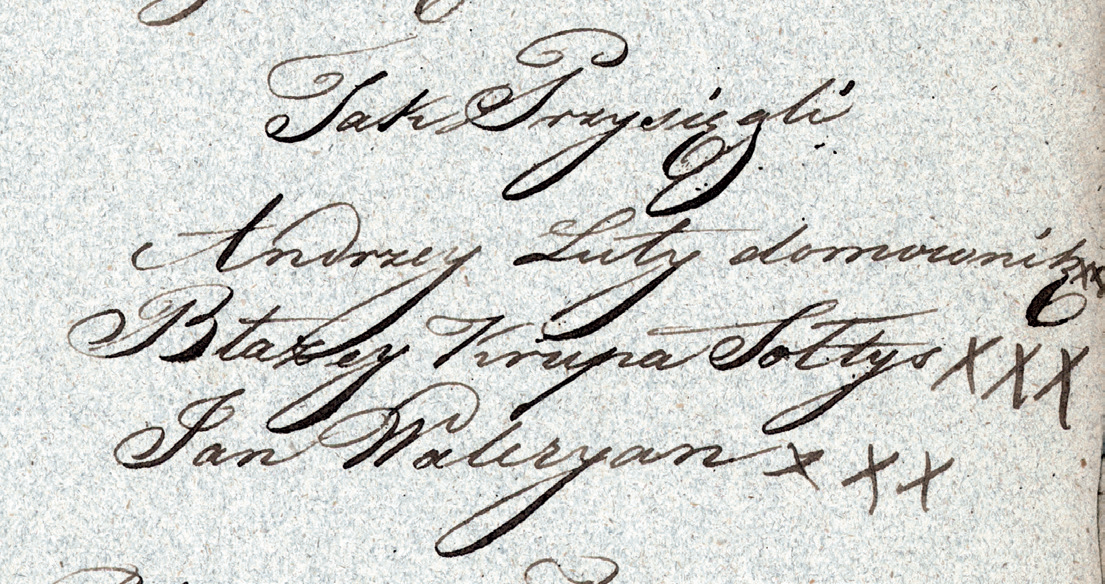 Tak Przysięgli
Andrzey Luty domownik xx
Błażey Krupa Sołtys XXX
Jan Waleryan x x x